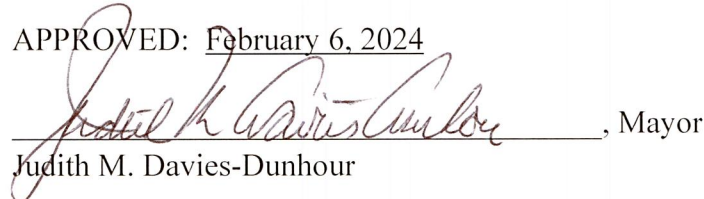 APPROVED: February 6, 2024
Judith M Davies-Dunhour, Mayor
Judith M. Davies-Dunhour